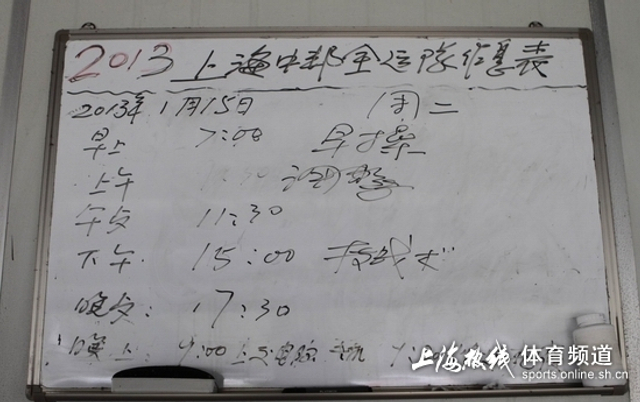 2013 上海中邦全运队作息表
2013年1月15日 周二
早上 7:00 早操
上午 调整
午饭 11:30
下午 15:00 技战术
晚饭: 17:30
晚上: 9:00 上交电脑 手机
上海热线 体育频道
sports.online.sh.cn